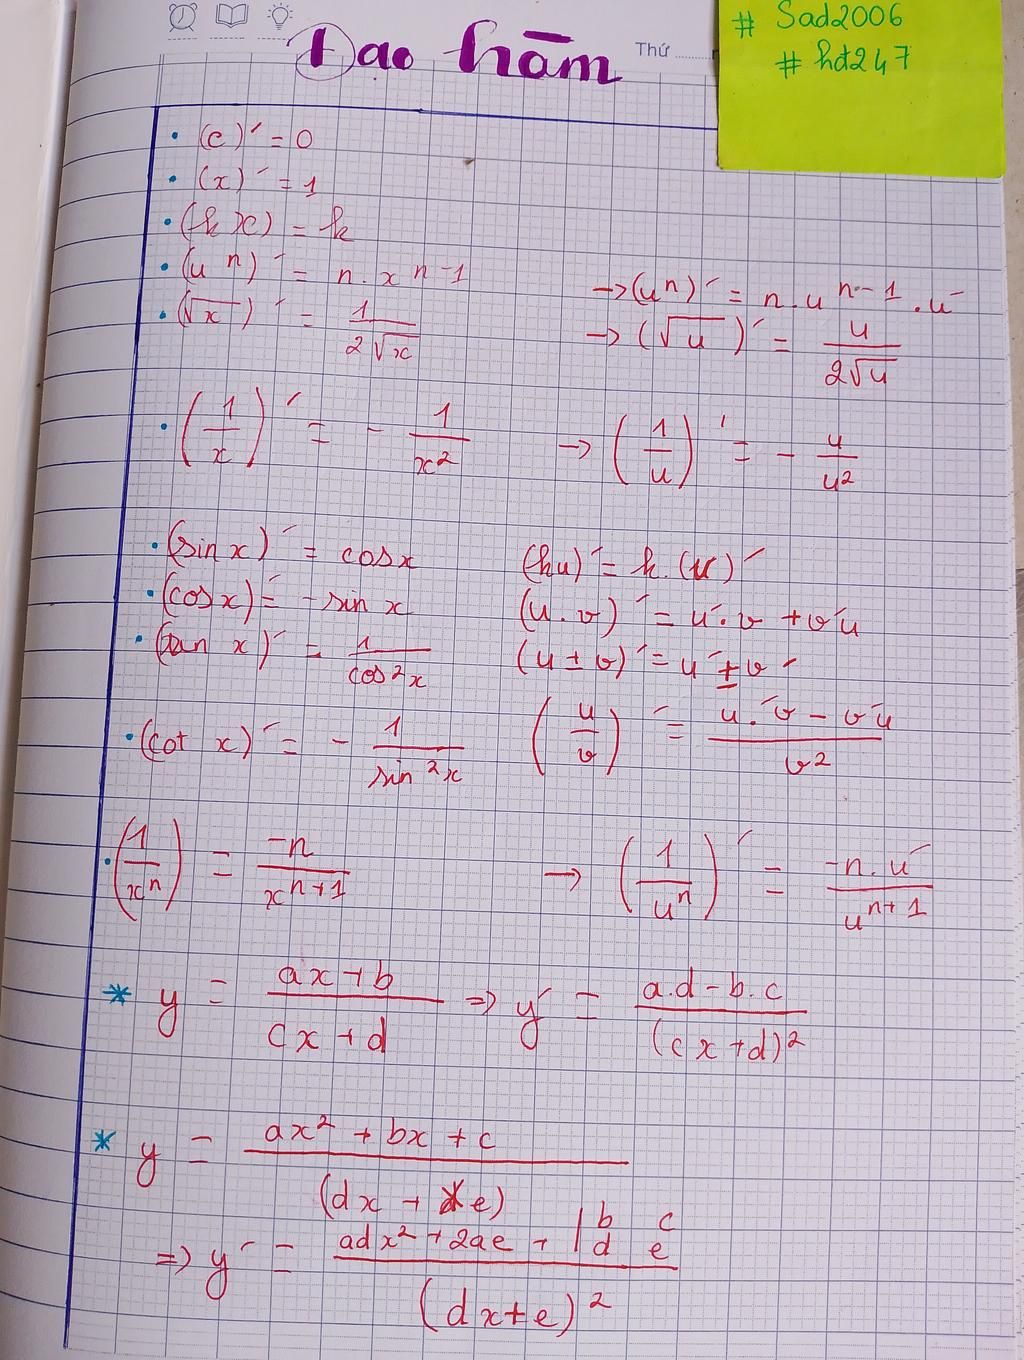 Đạo hàm
Thứ
# Sad2006
# hd247
• (c)' = 0
• (x)' = 1
• (kx) = k
• (u^n)' = n.x^{n-1} → (u^n)' = n.u^{n-1}.u'
• (√x)' = 1/(2√x) → (√u)' = u/(2√u)
• (1/x)' = - 1/x² → (1/u)' = - u/u²
• (sin x)' = cosx (ku)' = k.(u)'
• (cos x)' = -sin x (u.v)' = u'.v + v'u
• (tan x)' = 1/cos²x (u ± v)' = u' ± v'
• (cot x)' = - 1/sin²x (u/v)' = (u.'v - v'u)/v²
• (1/x^n) = -n/x^{n+1} → (1/u^n)' = -n.u'/u^{n+1}
* y = (ax+b)/(cx+d) => y' = (a.d-b.c)/(cx+d)²
* y = (ax² + bx + c)/(dx + e)
=> y' = (adx² + 2ae + | b c d e)/(dx+e)²